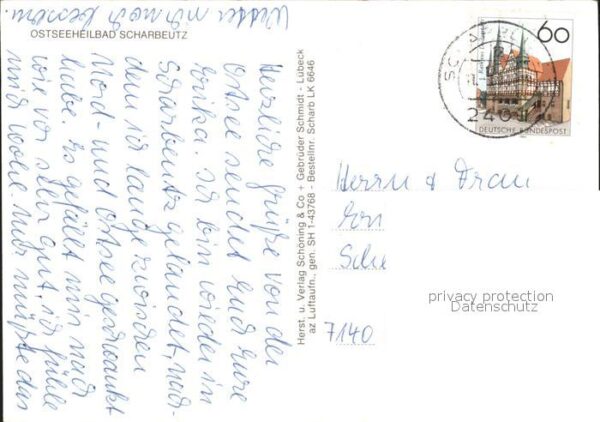 OSTSEEHEILBAD SCHARBEUTZ
Herzliche Grüße von der
Ostsee sendet Euch Eure
Erika. Ich bin wieder in
Scharbeutz gelandet, nach-
dem ich lange zwischen
Nord- und Ostsee geschwankt
habe. Es gefällt mir nach
wie vor sehr gut, ich fühle
mich wohl. Nur müßte das
Wetter noch besser
Herst. u. Verlag Schöning & Co + Gebrüder Schmidt - Lübeck
az Luftaufn., gen. SH 1-43768 - Bestellnr. Scharb LK 6646
60
240
DEUTSCHE BUNDESPOST
Herrn & Frau
Sche
7140
privacy protection
Datenschutz